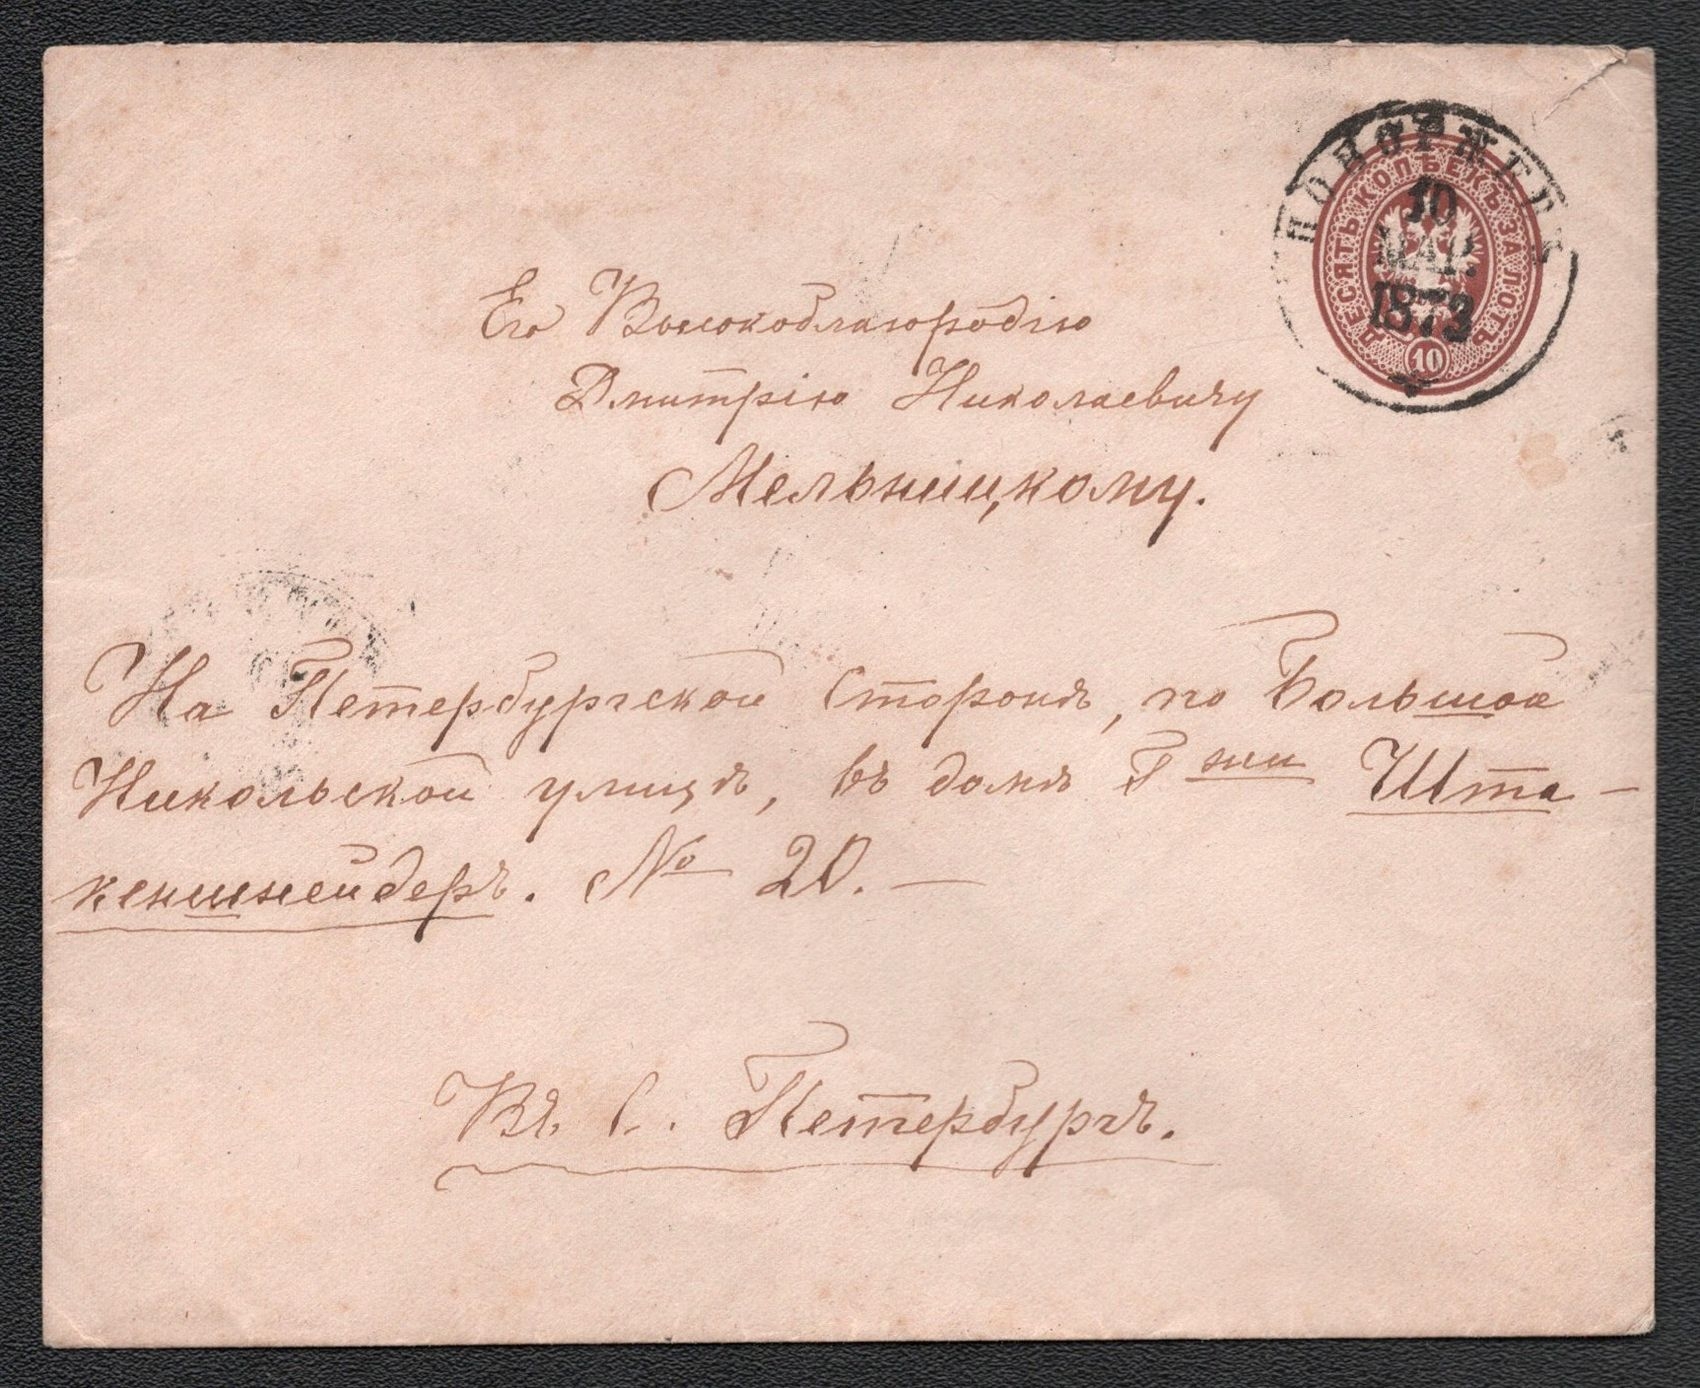 НОВОРЖЕВЪ
10
МАР.
1873
ДЕСЯТЬ КОПѢЕКЪ ЗА ЛОТЪ
10
Его Высокоблагородію
Дмитрію Николаевичу
Мельницкому.
На Петербургской Сторонѣ, по Большой
Никольской улицѣ, въ домѣ Г жи Шта-
кеншнейдеръ. № 20. —
Въ С. Петербургъ.